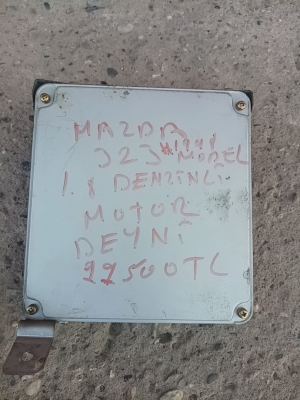 MAZDA
323 MODEL
DENZİNLİ
MOTOR
DEYNİ
22500TL